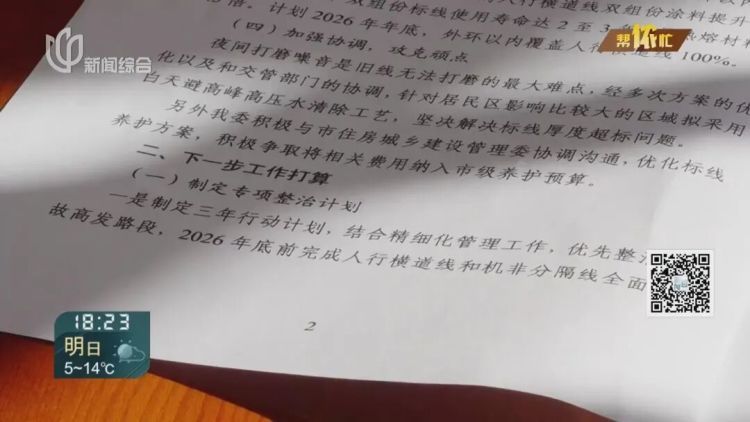 双组份标线使用寿命达2至3
人行横道线双组份涂料提升
落。计划2026年年底,外环以内覆盖人行横道线100%。
(四)加强协调,攻克顽点
夜间打磨噪音是旧线无法打磨的最大难点,经多次方案的优
化以及和交管部门的协调,针对居民区影响比较大的区域拟采用
白天避高峰高压水清除工艺,坚决解决标线厚度超标问题。
另外我委积极与市住房城乡建设管理委协调沟通,优化标线
养护方案,积极争取将相关费用纳入市级养护预算。
二、下一步工作打算
(一)制定专项整治计划
一是制定三年行动计划,结合精细化管理工作,优先整
故高发路段,2026年底前完成人行横道线和机非分隔线全面
2
新闻综合
帮侬忙
18:23
明日
5~14℃